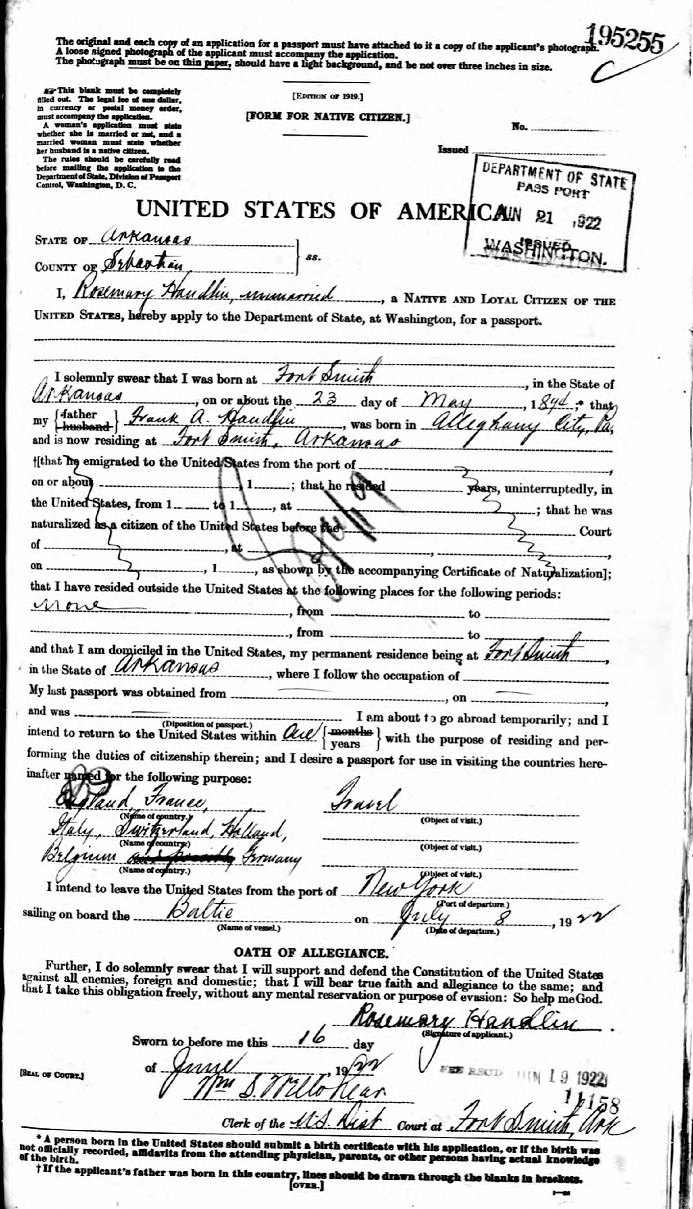 The original and each copy of an application for a passport must have attached to it a copy of the applicant's photograph.
A loose signed photograph of the applicant must accompany the application.
The photograph must be on thin paper, should have a light background, and be not over three inches in size.
195255
C
This blank must be completely
filled out. The legal fee of one dollar,
in currency or postal money order,
must accompany the application.
A woman's application must state
whether she is married or not, and a
married woman must state whether
her husband is a native citizen.
The rules should be carefully read
before mailing the application to the
Department of State, Division of Passport
Control, Washington, D. C.
[EDITION OF 1919.]
[FORM FOR NATIVE CITIZEN.]
No.
Issued
DEPARTMENT OF STATE
PASSPORT
JUN 21 1922
ISSUED
WASHINGTON.
UNITED STATES OF AMERICA.
STATE OF Arkansas
COUNTY OF Sebastian
ss.
I, Rosemary Handlin, unmarried, a NATIVE AND LOYAL CITIZEN OF THE
UNITED STATES, hereby apply to the Department of State, at Washington, for a passport.
I solemnly swear that I was born at Fort Smith, in the State of
Arkansas, on or about the 23 day of May, 1894;* that
my {father husband} Frank A. Handlin, was born in Alleghany City, Pa,
and is now residing at Fort Smith, Arkansas
†[that he emigrated to the United States from the port of
on or about , 1 ; that he resided years, uninterruptedly, in
the United States, from 1 to 1 , at ; that he was
naturalized as a citizen of the United States before the Court
of , at , ,
on , 1 , as shown by the accompanying Certificate of Naturalization];
that I have resided outside the United States at the following places for the following periods:
None , from to
, from to
and that I am domiciled in the United States, my permanent residence being at Fort Smith,
in the State of Arkansas, where I follow the occupation of
My last passport was obtained from , on ,
and was I am about to go abroad temporarily; and I
(Diposition of passport.)
intend to return to the United States within one {months years} with the purpose of residing and per-
forming the duties of citizenship therein; and I desire a passport for use in visiting the countries here-
inafter named for the following purpose:
England, France, Travel
(Name of country.) (Object of visit.)
Italy, Switzerland, Holland,
(Name of country.) (Object of visit.)
Belgium and possibly Germany
(Name of country.) (Object of visit.)
I intend to leave the United States from the port of New York
(Port of departure.)
sailing on board the Baltic on July 8, 1922
(Name of vessel.) (Date of departure.)
OATH OF ALLEGIANCE.
Further, I do solemnly swear that I will support and defend the Constitution of the United States
against all enemies, foreign and domestic; that I will bear true faith and allegiance to the same; and
that I take this obligation freely, without any mental reservation or purpose of evasion: So help me God.
Rosemary Handlin.
(Signature of applicant.)
Sworn to before me this 16 day
of June, 1922
[SEAL OF COURT.]
FEE RECD JUN 19 1922
11158
Wm S. Wellshear
Clerk of the U.S. Dist Court at Fort Smith, Ark
* A person born in the United States should submit a birth certificate with his application, or if the birth was
not officially recorded, affidavits from the attending physician, parents, or other persons having actual knowledge
of the birth.
† If the applicant's father was born in this country, lines should be drawn through the blanks in brackets.
[OVER.]